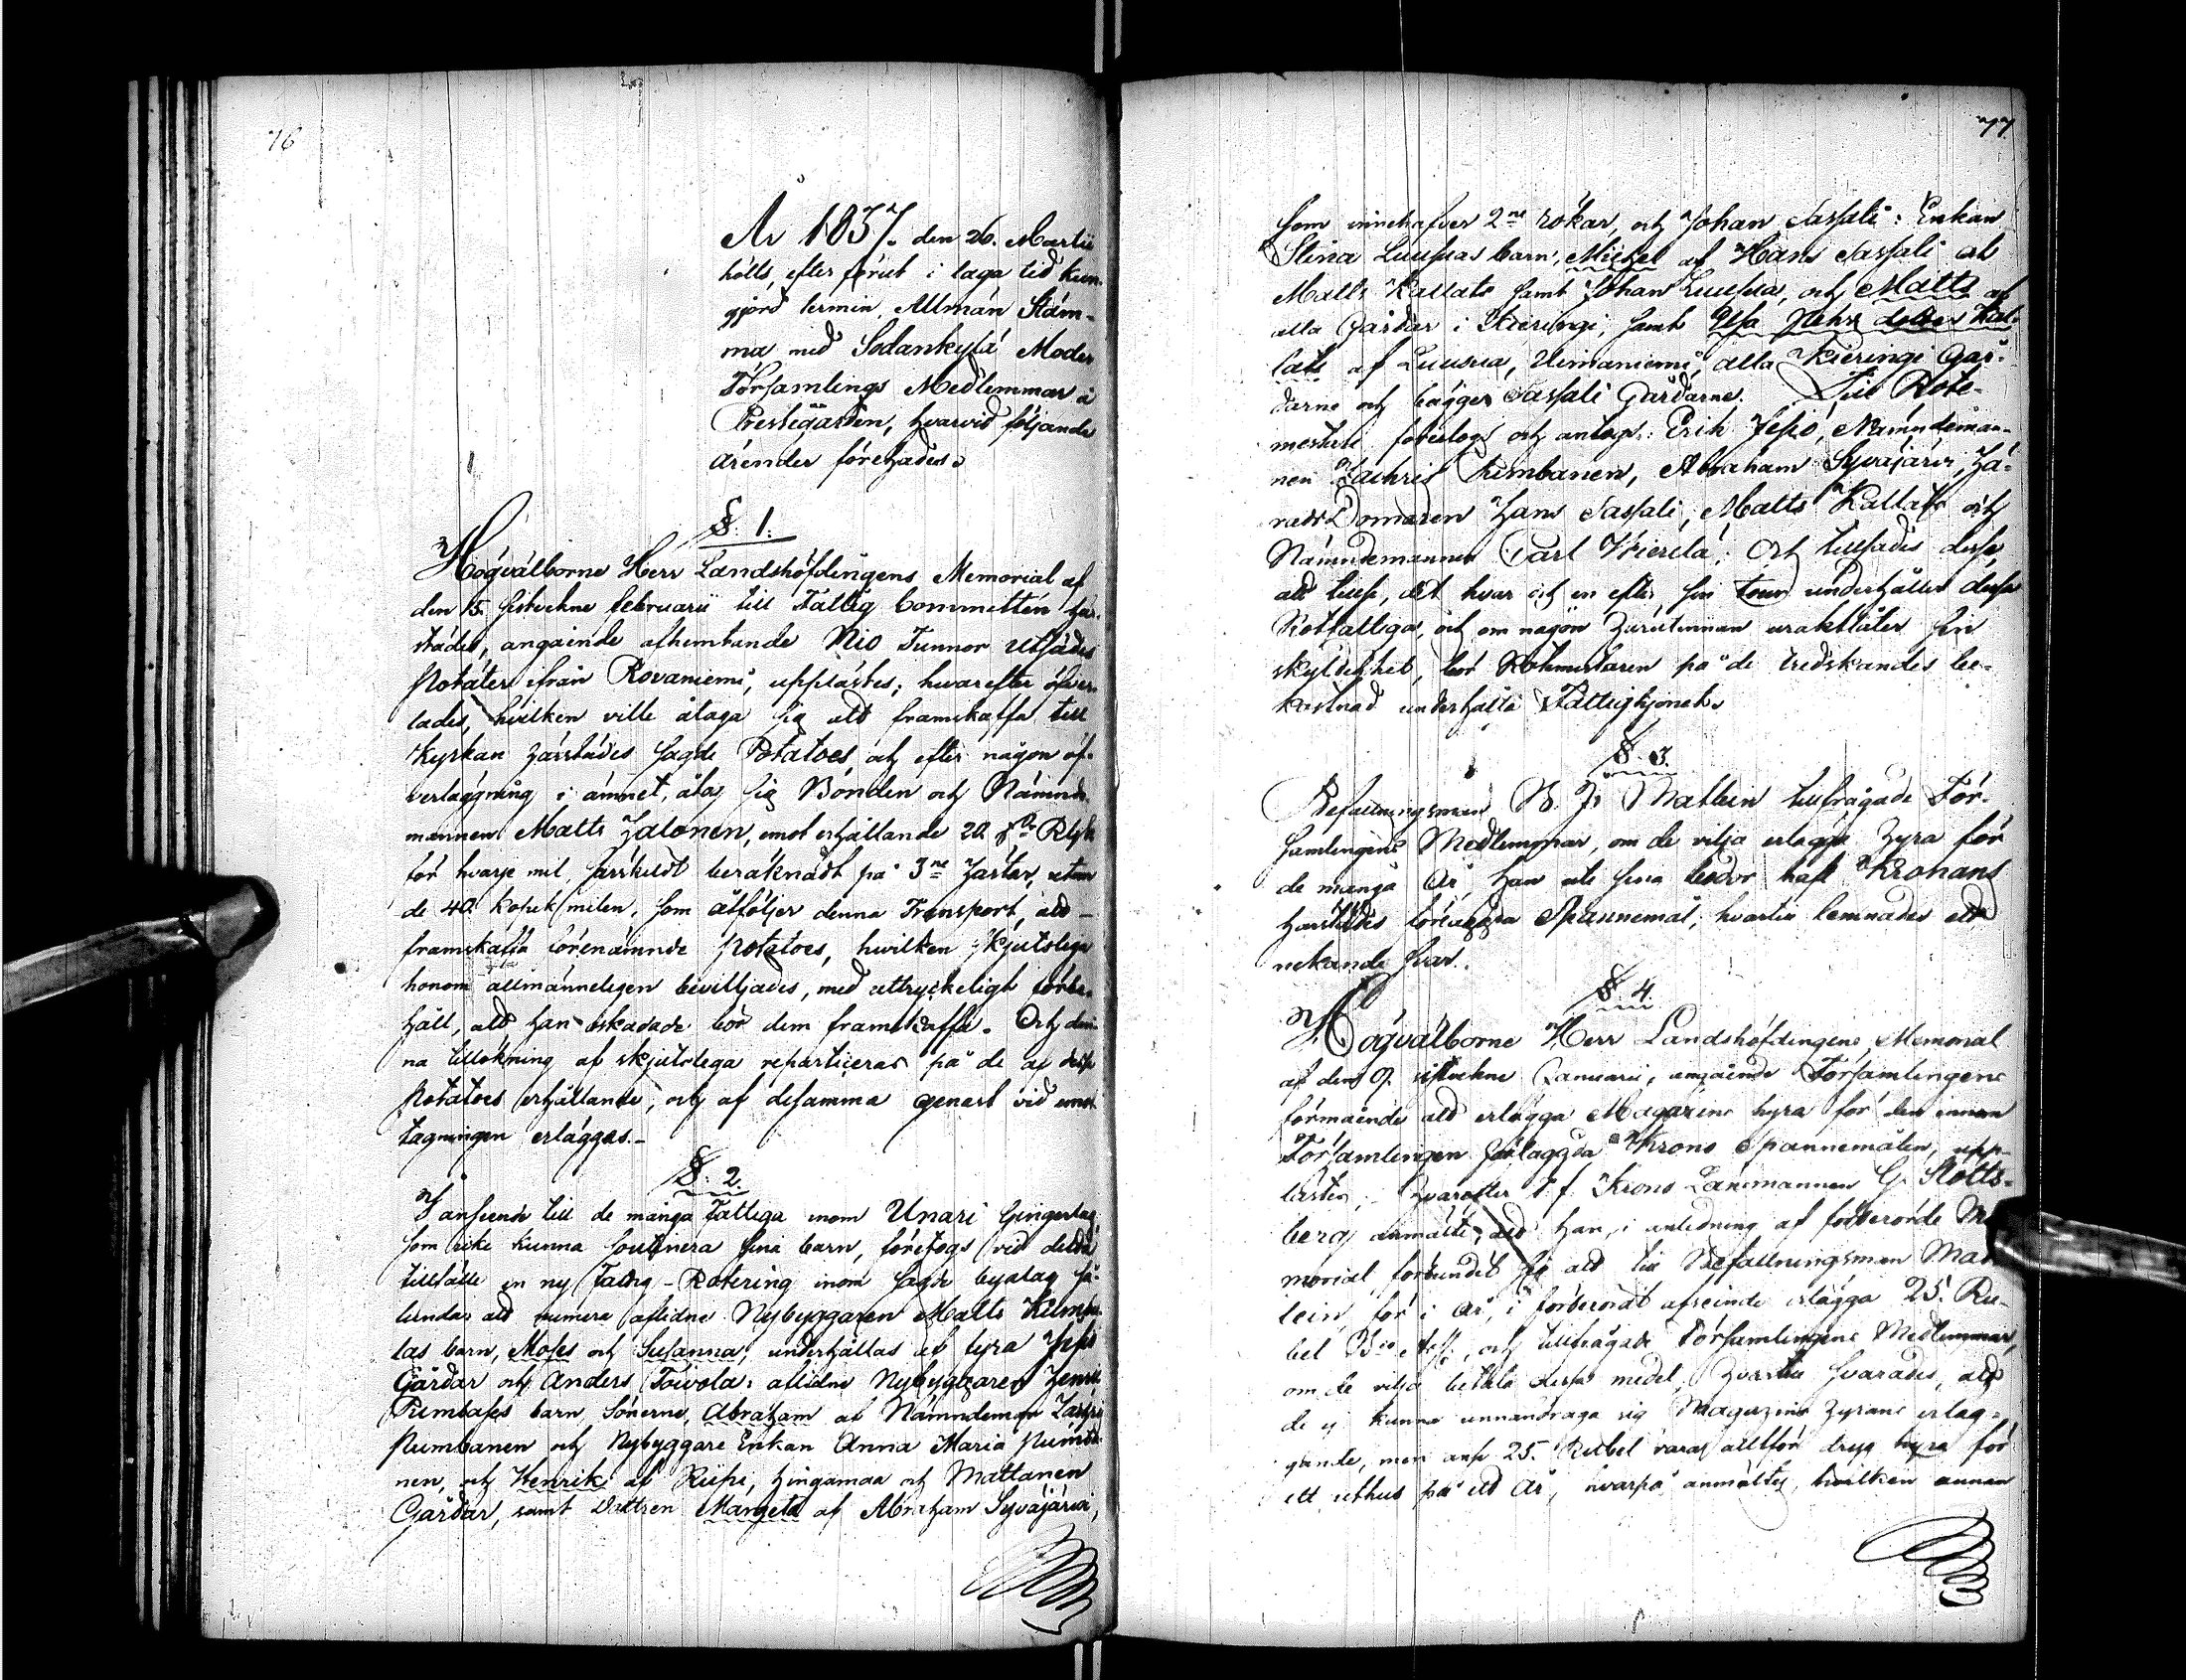 76
År 1837. den 26. Martii
hölts, efter förut i laga tid kun-
gjord termin, Allmän Stäm-
ma med Sodankylä Moder
Församlings Medlemmar å
Prestegården, hvarvid följande
ärender förehades.
§. 1.
Högvälborne Herr Landshöfdingens Memorial af
den 15. sistvekne februarii till Fattig Committén här-
städes, angående afhemtande Nio Tunnor Utsädes
Potäter ifrån Rovaniemi, upplästes; hvarefter öfver-
lades, hvilken ville åtaga sig att framskaffa till
Kyrkan härstädes sagde Potatoes, och efter någon öf-
verläggning i ämnet, åtog sig Bonden och Nämnde-
mannen Matts Halonen, emot erhållande 20
för hvarje mil, särskildt beräknadt på 3ne Hästar, utom
de 40. kopek milen, som åtföljer denna Transport, att
framskaffa förenämnde potatoes, hvilken skjutslega
honom allmänneligen beviljades, med uttryckeligt förbe-
håll, att han oskadade bör dem framskaffa. Och den-
na tillökning af skjutslega reparticeras på de af desse
Potatoes erhållande, och af desamma genast vid emot-
tagningen erlägges.-
§. 2.
I anseende till de många Fattiga inom Unari Gingerlag,
som icke kunna soutinera sina barn, företogs vid detta
tillfälle en ny Fattig-Rotering inom sagde byalag så-
lunda: att numera aflidne Nybyggaren Matts
las barn, Moses och Susanna, underhållas af fyra Jesiö
Gårdar och Anders Toivola: aflidne Nybyggaren Henrik
Pumbases barn, Sönerne, Abraham af Nämndeman Zachris
Pumbanen och Nybyggare Enkan Anna Maria Pumba-
nen, och Henrik af Riipi, Hingamaa och Mattanen
Gårdar, samt Dottren Margeta af Abraham Syväjärvi,
77
som innehafver 2ne rökar, och Johan Sassali: Enkan
Stina Luusuas barn, Michel af Hans Sassali och
Matts Kallatz samt Johan Luusua, och Matts af
alla Gårdar i Kieringi, samt
af Luusua, alla Kieringi Går-
darne och bägge Sassali Gårdarne. Till Rote-
mestare föreslogs och antogs: Erik Jesiö, Nämndeman-
nen Zachris Pumbanen, Abraham Syväjärvi, Hä-
radsDomaren Hans Sassali, Matts Kallatz och
Nämndemannen Carl Kierelä: Och tillsades desse,
att tillse, att hvar och en efter sin tour underhåller desse
Rotfattiga, och om någon härutinnan uraktlåter sin
skyldighet, bör Rotemestaren på de tredskandes be-
kostnad underhålla Fattighjonet.
§. 3.
Befallningsman Mathein tillfrågade För-
samlingens Medlemmar, om de vilja erlägga hyra för
de många År, han uti sina bodor haft Kronans
härstädes förlaggda Spannemål; hvartill lemnades ett
nekande svar.
§. 4.
Högvälborne Herr Landshöfdingens Memorial
af den 9. sistvekne Januarii, angående Församlingens
förmående att erlägga Magazins hyra för den innom
Församlingen förlaggda Krono Spannemålen, upp-
lästes; hvarefter t. f. Krono Länsmannen G. Slotts-
berg anmälte, att han, i anledning af förberörde Me-
morial förbundit sig att till Befallningsman Mat-
hein för i år, i förberördt afseende erlägga 25. Ru-
bel B:co Ass:, och tillfrågade Församlingens Medlemmar,
om de vilja betala desse medel, hvartill svarades, att
de ej kunna unnandraga sig Magazins hyrans erläg-
gande, men anse 25. Rubel vara alltför dryg hyra för
ett uthus på ett år, hvarpå anmältes, hvilken annan